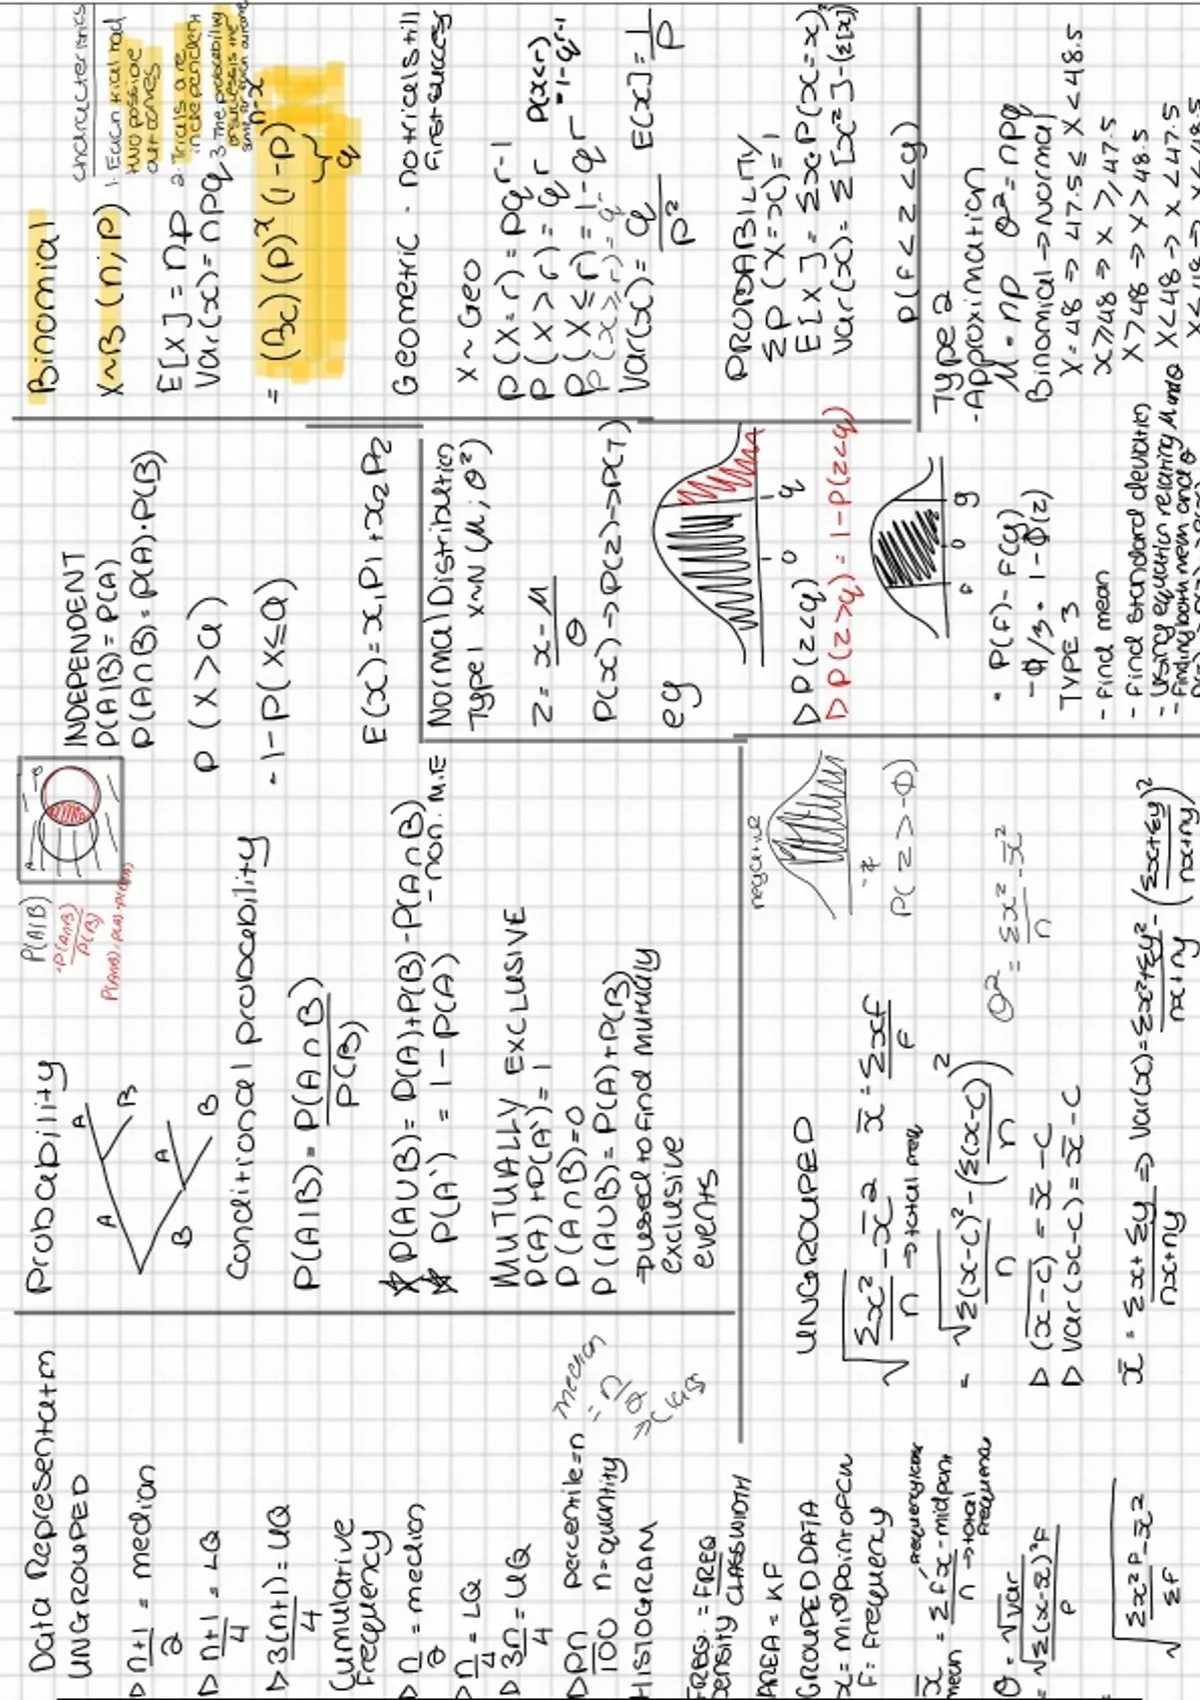 Data Representatn
UNGROUPED
▷ n+1/2 = median
▷ n+1/4 = LQ
▷ 3(n+1)/4 = UQ
Cumulative
Frequency
▷ n/2 = median
▷ n/4 = LQ
▷ 3n/4 = UQ
▷ pn/100 percentile = n
n = quantity
median = n/2
⇒ class
HISTOGRAM
FREQ. Density = FREQ/CLASSWIDTH
AREA = KF
GROUPED DATA
x = midpoint of cw
F = frequency
x̄ mean = Σfx/n
- midpoint
→ total frequency
σ = √var
= √Σ(x-x̄)²F/F
= √Σx²F/ΣF - x̄²
Probability
A
A
B
B
A
B
P(A|B)
= P(A∩B)/P(B)
A
B
Conditional probability
P(A|B) = P(A∩B)/P(B)
☆ P(A∪B) = P(A)+P(B)-P(A∩B)
- non. M.E
☆ P(A') = 1 - P(A)
MUTUALLY EXCLUSIVE
P(A)+P(A') = 1
P(A∩B)=0
P(A∪B) = P(A)+P(B)
used to find mutually
exclusive
events
INDEPENDENT
P(A|B) = P(A)
P(A∩B) = P(A)·P(B)
P(X>a)
= 1-P(X≤a)
E(x) = x₁P₁+x₂P₂
UNGROUPED
√Σx²/n - x̄²
n → total freq
x̄ = Σxf/F
= √Σ(x-c)²/n - (Σ(x-c)/n)²
▷ (x-c) = x̄-c
▷ var(x-c) = x̄-c
σ² = Σx²/n - x̄²
x̄ = Σx+Σy/nx+ny ⇒ var(x) = Σx²+Σy²/nx+ny - (Σx+Σy/nx+ny)²
negative
-z
P(z>-Φ)
Normal Distribution
Type 1 X~N(μ; σ²)
z = x-μ/σ
P(x)→P(z)→P(T)
eg
0 q
▷ P(z<q)
▷ P(z>q) = 1-P(z<q)
f 0 g
P(f<z<g)
• P(f) - F(g)
TYPE 3
- find mean
- find standard deviation
- using equation relating μ and σ
- finding both mean and σ
Binomial
X~B(n; p)
E[X] = np
Var(x) = npq
characteristics
1. Each trial had
two possible
outcomes
2. Trials are
independent
3. The probability
of success is the
Geometric - no trials till
first success
X~Geo
P(X=r) = pq^r-1
P(X>r) = q^r
P(X≤r) = 1-q^r
P(X<r)
= 1-q^r-1
Var(x) = q/p²
E[X] = 1/p
PROBABILITY
ΣP(X=x) = 1
E[X] = ΣxP(X=x)
Var(x) = Σ[x²]-(Σ[x])²
Type 2
- Approximation
μ = np σ² = npq
Binomial → Normal
X=48 → 47.5 ≤ X < 48.5
X≥48 → X ≥ 47.5
X>48 → X > 48.5
X<48 → X < 47.5